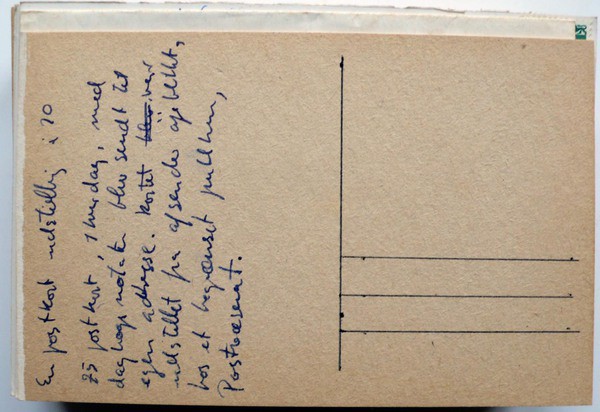 En postkort udstilling i 70
25 postkort, 1 hver dag, med
dagbogsnotater blev sendt til
egen adresse. Kortet blev var
udstillet fra afsender øjeblikket,
hos et begrænset publikum,
Postvæsenet.